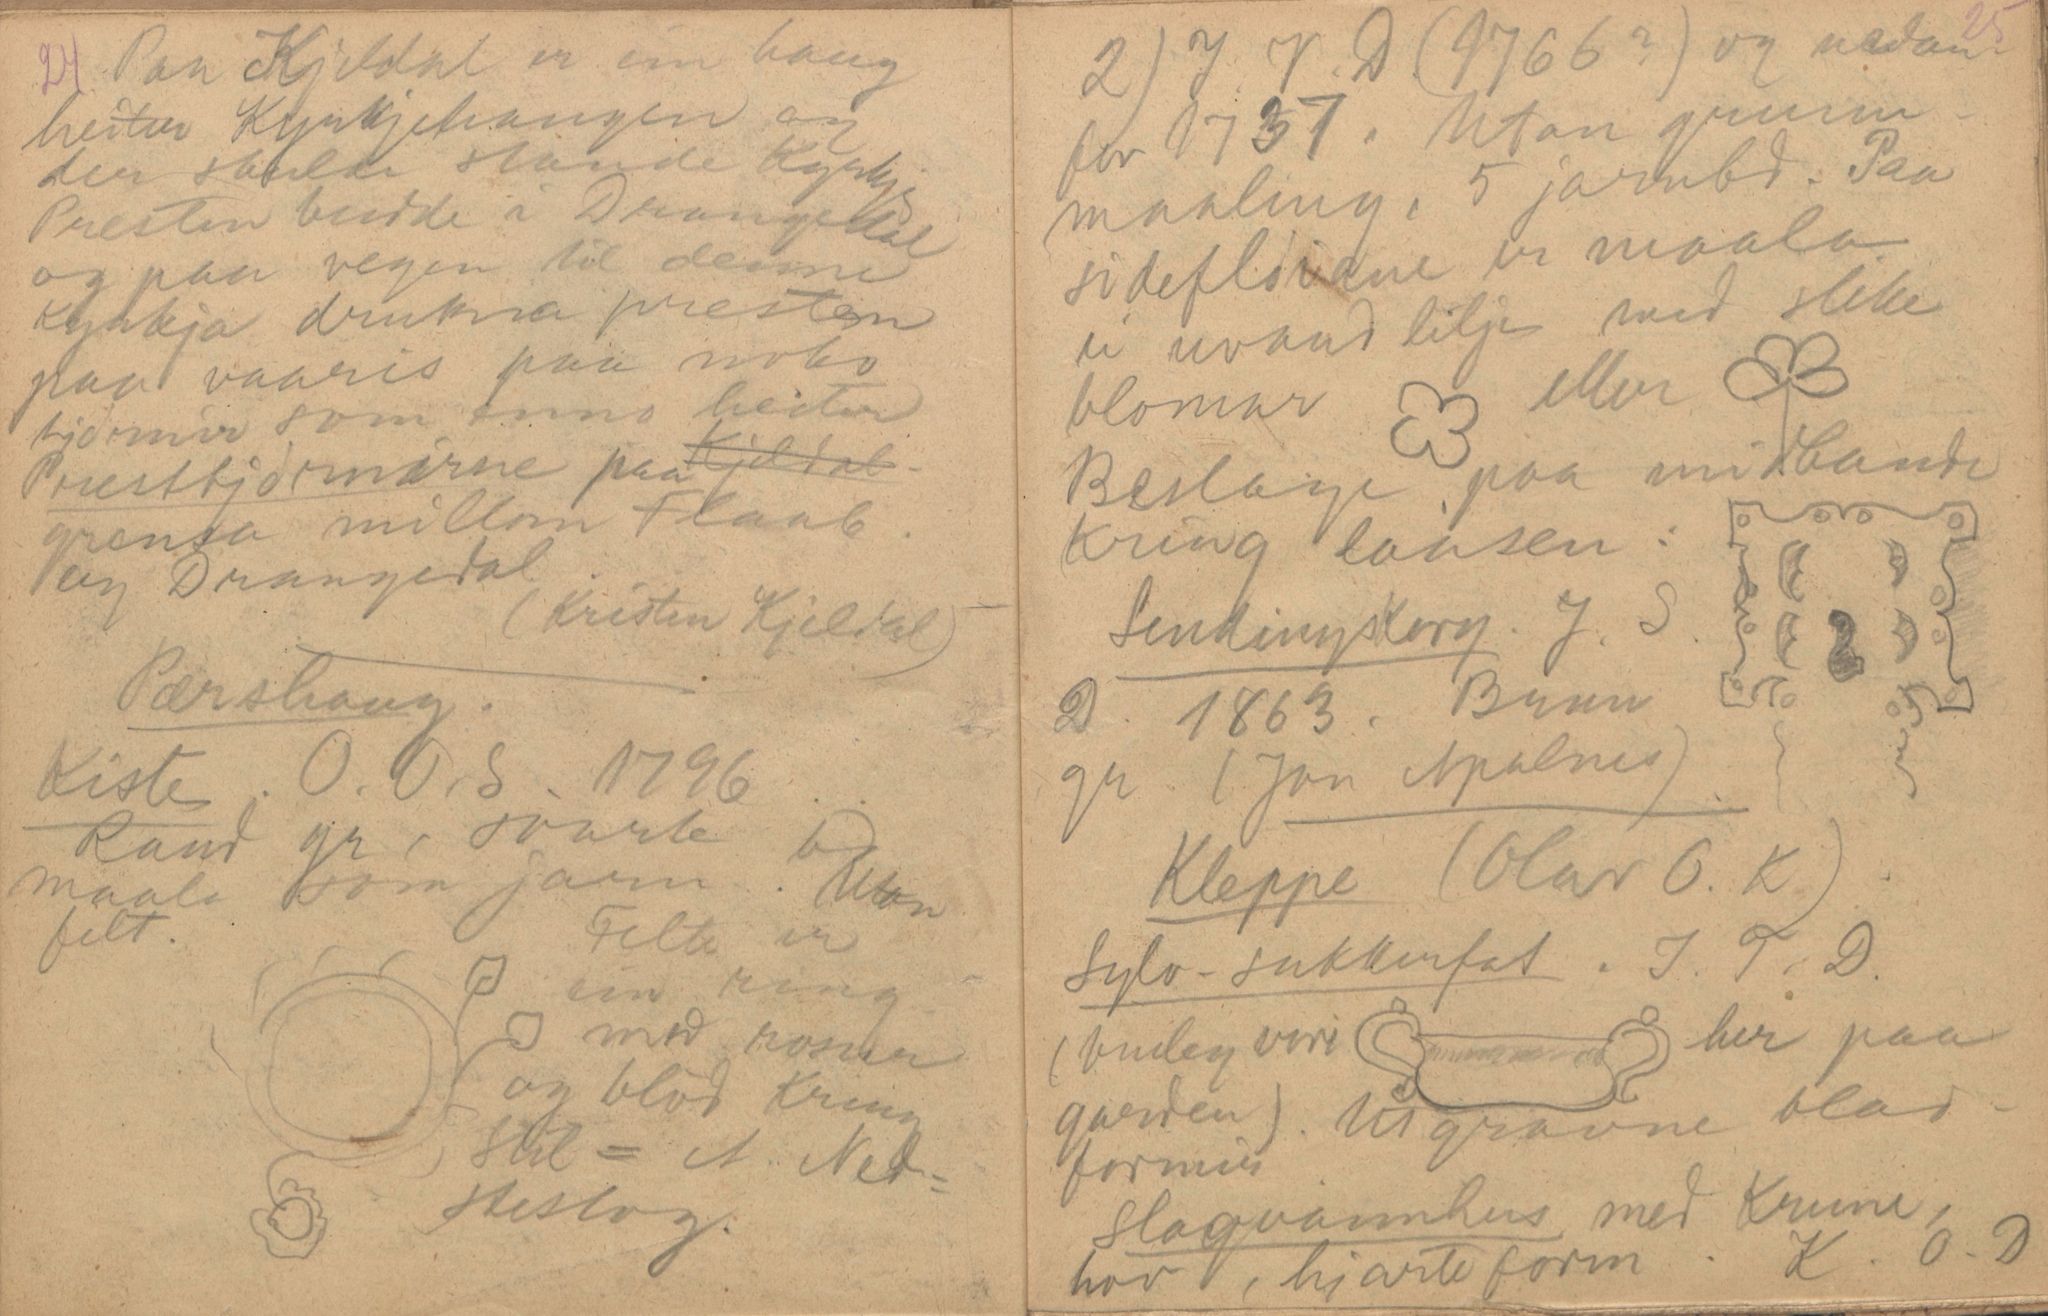 24
Paa Kjeldal er ein haug
heiter Kyrkjehaugen og
der skulde stande Kyrkje
Presten budde i Drangedal
og paa vegen til denne
Kyrkja drukna presten
paa vaaris paa noko
tjørnir som enno heiter
Presttjørnirne paa Kjeldal
grensa millom Flaab.
og Drangedal
(Kristen Kjeldal)
Pærshaug.
Kiste. O. O. S. 1796
Raud gr, svarte b
maala som jarn. Utan
felt.
Felte er
ein ring
med rosur
og blod kring
Stil = A. Ned-
stestog.
25
2) J. V. D (1766?) og nedan-
for 1737. Utan grunn-
maaling, 5 jarnbd. Paa
sideflóidne er maala
ei uvand lilje med slike
blomar eller
Beslage paa midbande
kring laasen:
Sendingskorg. J. S.
D. 1863. Brun
gr (Jon Apalnes)
Kleppe (Olav O. K)
Sylv-sukkerfat. J. T. D.
(budeg veri her paa
garden). Utgravne blad-
formir
Slagvannhus med Krune,
hov, hjarteform. K. O. D